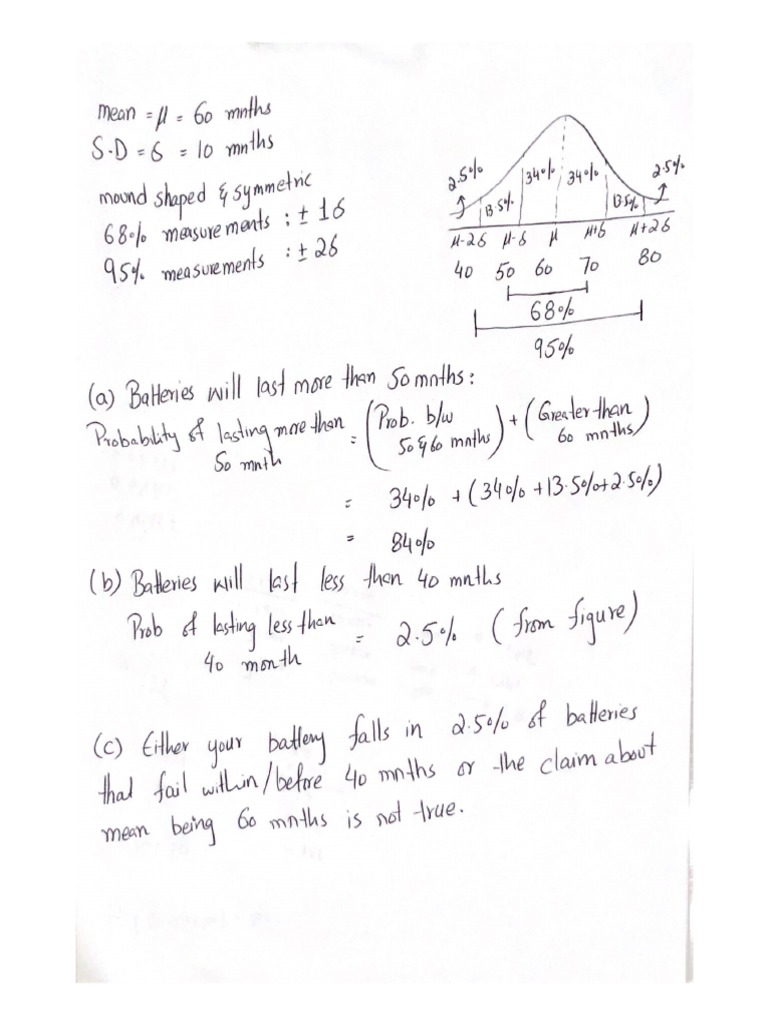 mean = μ = 60 mnths
S.D = σ = 10 mnths
mound shaped & symmetric
68% measurements : ± 1σ
95% measurements : ± 2σ
2.5% 13.5% 34% 34% 13.5% 2.5%
μ-2σ μ-σ μ μ+σ μ+2σ
40 50 60 70 80
68%
95%
(a) Batteries will last more than 50 mnths :
Probability of lasting more than 50 mnth = (Prob. b/w 50 & 60 mnths) + (Greater than 60 mnths)
= 34% + (34% + 13.5% + 2.5%)
= 84%
(b) Batteries will last less than 40 mnths
Prob of lasting less than 40 month = 2.5% (from figure)
(c) Either your battery falls in 2.5% of batteries
that fail within/before 40 mnths or the claim about
mean being 60 mnths is not true.